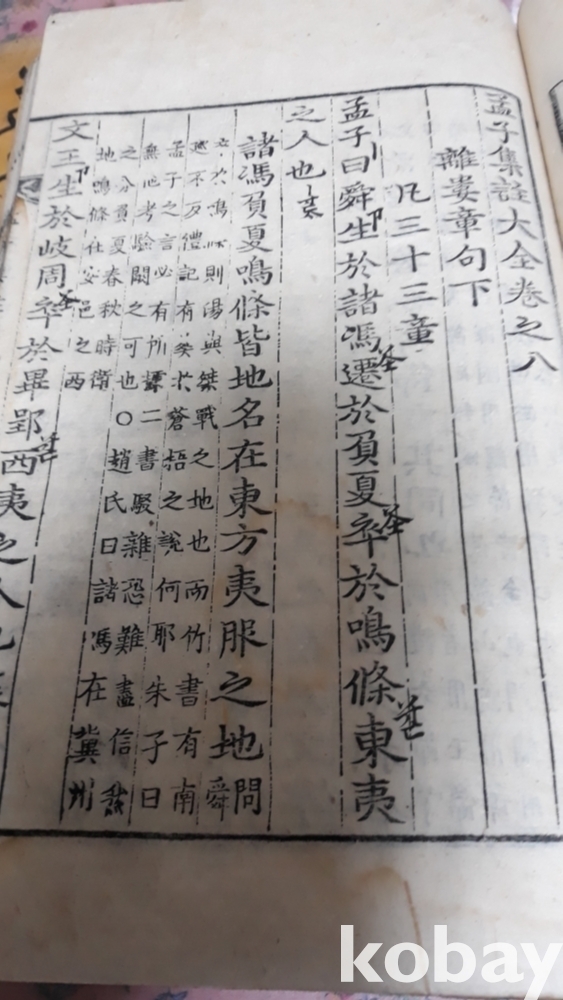 孟子集註大全卷之八
離婁章句下
凡三十三章
孟子曰舜生於諸馮遷於負夏卒於鳴條東夷
之人也
諸馮負夏鳴條皆地名在東方夷服之地問舜
卒於鳴條則湯與桀戰之地也而竹書有南
巡不反禮記有葬於蒼梧之說何耶朱子曰
孟子之言必有所據二書駁雜恐難盡信然
無他考驗闕之可也○趙氏曰諸馮在冀州
之分負夏春秋時衛
地鳴條在安邑之西
文王生於岐周卒於畢郢西夷之人也
kobay